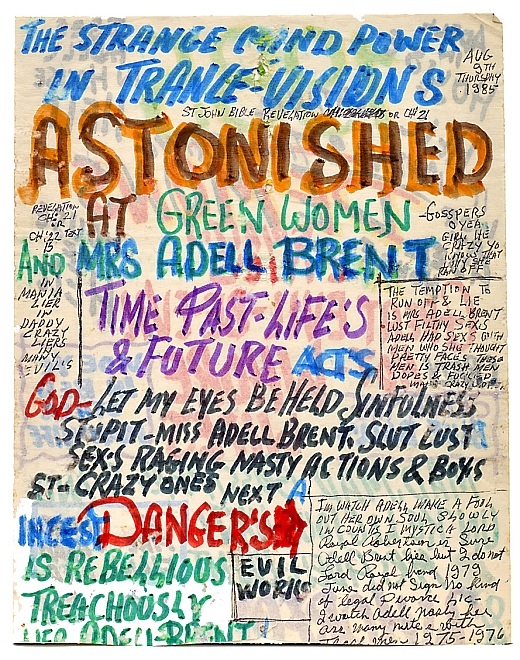 THE STRANGE MIND POWER
IN TRANCE-VISION'S
AUG
9TH
THURSDAY
1985
ST JOHN BIBLE REVELATION OR CH 21
ASTONISHED
AT GREEN WOMEN
AND MRS ADELL BRENT
REVELATION
CH. 21
OR
CH. 22 TEXT
15
IN
MANIA
LIER
IN
DADDY
CRAZY
LIERS
MANY
EVIL'S
GOSSPERS
O YEA
CRAZY YO
KNOW THAT
WHY SHE
RAN OFF
TIME PAST-LIFE'S
& FUTURE ACT'S
THE TEMPTION TO
RUN OFF & LIE
IS MRS ADELL BRENT
LUST FILTHY SEXS
ADELL HAD SEXS WITH
MEN WHO SHE THOUGHT
PRETTY FACES THOSE
MEN IS TRASH MEN
DOPES & FUCKED
MANY CRAZY
GOD-LET MY EYES BEHELD SINFULNESS
STUPIT-MISS ADELL BRENT, SLUT LUST
SEXS RAGING NASTY ACTIONS & BOYS
ST-CRAZY ONES NEXT A
INCEST DANGER'S
IS REBELLIOUS
TREACHOUSLY
LIES ADELL BRENT
EVIL
WORKS
I'M WATCH ADELL MAKE A FOOL
OUT HER OWN SOUL SLOWLY
IN COUNTS I MYSTIC LORD
Royal Robertson is Sure
Adell Brent lies but I do not
Lord Royal hand 1979
June did not Sign No kind
of legal Divorce Lic.
I watch Adell nasty her
are many with
Trash men 1975-1976